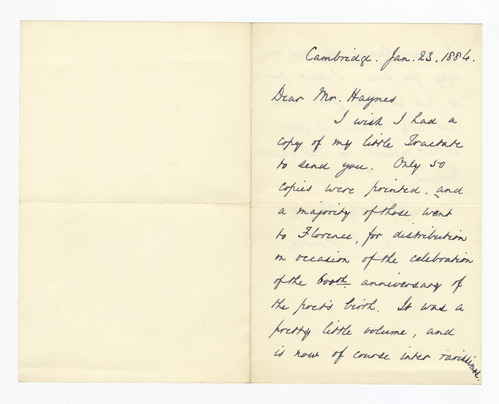 Cambridge. Jan. 23. 1884.
Dear Mr. Haynes
I wish I had a
copy of my little Tractate
to send you. Only 50
copies were printed, and
a majority of those went
to Florence, for distribution
on occasion of the celebration
of the 600th anniversary of
the poet's birth. It was a
pretty little volume, and
is now of course inter rarissima.